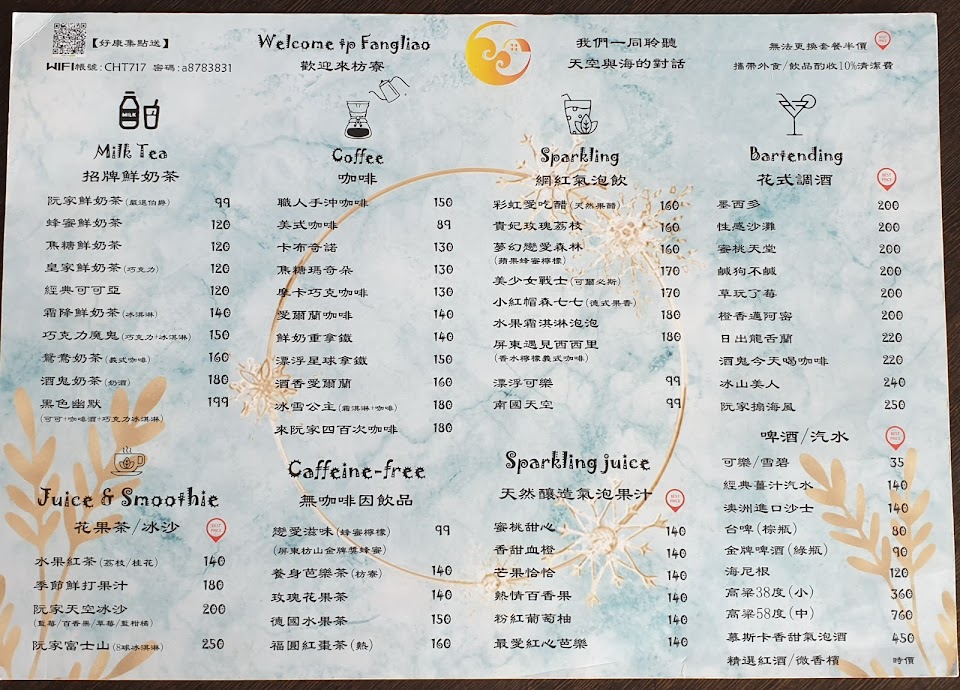 【好康集點送】
WIFI帳號:CHT717 密碼:a8783831
Welcome tp Fangliao
歡迎來枋寮
我們一同聆聽
天空與海的對話
無法更換套餐半價
BEST PRICE
攜帶外食/飲品酌收10%清潔費
MILK
Milk Tea
招牌鮮奶茶
阮家鮮奶茶(嚴選伯爵) 99
蜂蜜鮮奶茶 120
焦糖鮮奶茶 120
皇家鮮奶茶(巧克力) 120
經典可可亞 120
霜降鮮奶茶(冰淇淋) 140
巧克力魔鬼(巧克力+冰淇淋) 150
鴛鴦奶茶(義式咖啡) 160
酒鬼奶茶(奶酒) 180
黑色幽默 199
(可可+咖啡酒+巧克力冰淇淋)
Coffee
咖啡
職人手沖咖啡 150
美式咖啡 89
卡布奇諾 130
焦糖瑪奇朵 130
摩卡巧克咖啡 130
愛爾蘭咖啡 140
鮮奶重拿鐵 140
漂浮星球拿鐵 150
酒香愛爾蘭 160
冰雪公主(霜淇淋+咖啡) 180
來阮家四百次咖啡 180
Sparkling
網紅氣泡飲
彩虹愛吃醋(天然果醋) 160
貴妃玫瑰荔枝 160
夢幻戀愛森林 160
(蘋果蜂蜜檸檬)
美少女戰士(可爾必斯) 170
小紅帽森七七(德式果香) 170
水果霜淇淋泡泡 180
屏東遇見西西里 180
(香水檸檬義式咖啡)
漂浮可樂 99
南國天空 99
Bartending
花式調酒
BEST PRICE
墨西多 200
性感沙灘 200
蜜桃天堂 200
鹹狗不鹹 200
草玩了莓 200
橙香邁阿密 200
日出龍舌蘭 220
酒鬼今天喝咖啡 220
冰山美人 240
阮家搧海風 250
啤酒/汽水
BEST PRICE
可樂/雪碧 35
經典薑汁汽水 140
澳洲進口沙士 140
台啤(棕瓶) 80
金牌啤酒(綠瓶) 90
海尼根 120
高粱38度(小) 360
高粱58度(中) 760
慕斯卡香甜氣泡酒 450
精選紅酒/微香檳 時價
Juice & Smoothie
花果茶/冰沙
BEST PRICE
水果紅茶(荔枝/桂花) 140
季節鮮打果汁 180
阮家天空冰沙 200
(藍莓/百香果/草莓/藍柑橘)
阮家富士山(8球冰淇淋) 250
Caffeine-free
無咖啡因飲品
戀愛滋味(蜂蜜檸檬) 99
(屏東枋山金牌獎蜂蜜)
養身芭樂茶(枋寮) 140
玫瑰花果茶 140
德國水果茶 150
福圓紅棗茶(熱) 160
Sparkling juice
天然釀造氣泡果汁
BEST PRICE
蜜桃甜心 140
香甜血橙 140
芒果恰恰 140
熱情百香果 140
粉紅葡萄柚 140
最愛紅心芭樂 140